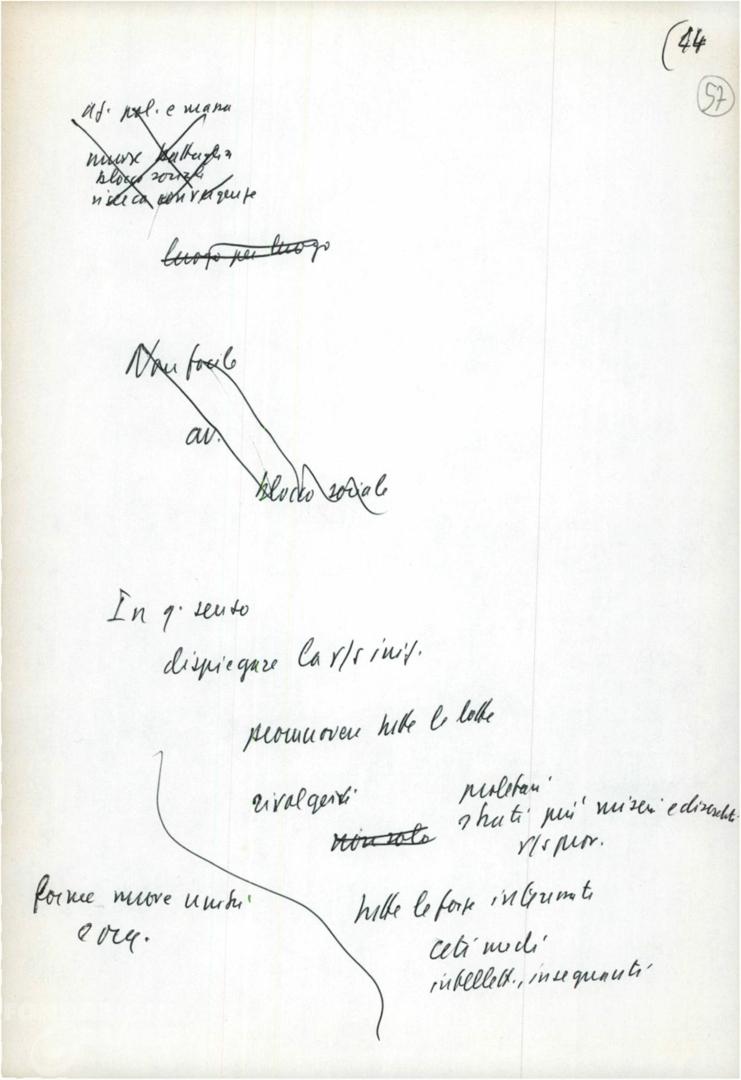 (44
57
az. pol. e mana
nuove battaglia
blocco sociale
convergenze
luogo per luogo
Non facile
av.
blocco sociale
In q. senso
dispiegare la n/s iniz.
promuovere tutte le lotte
rivolgersi
proletari
non solo
strati più miseri e diseredati
tutte le forze interessate
forme nuove unità
e org.
ceti medi
intellett., insegnanti